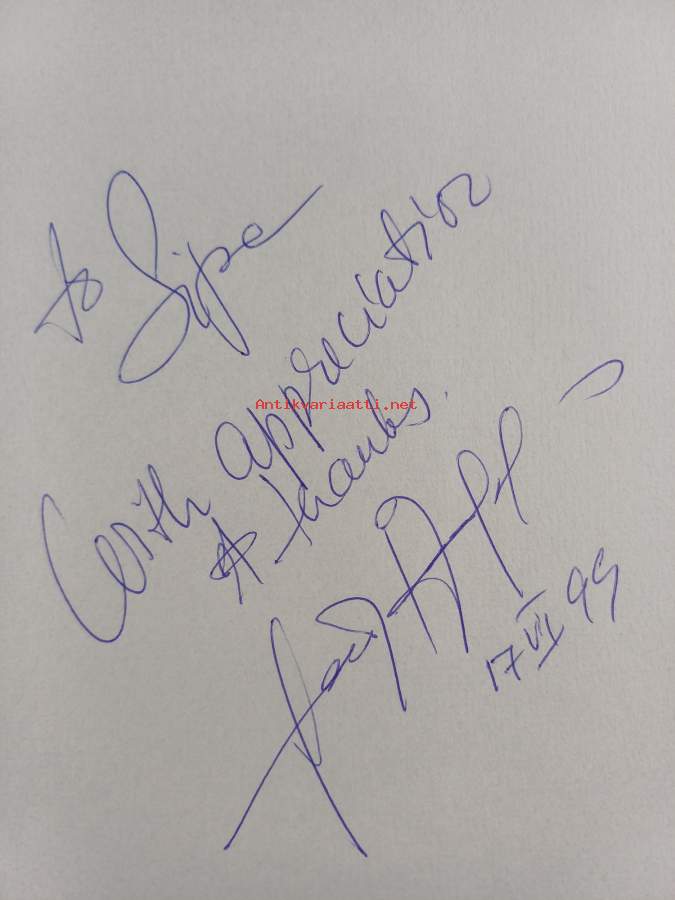 to Sipe
With appreciation
& thanks.
Antikvariaatti.net
17 VI 99